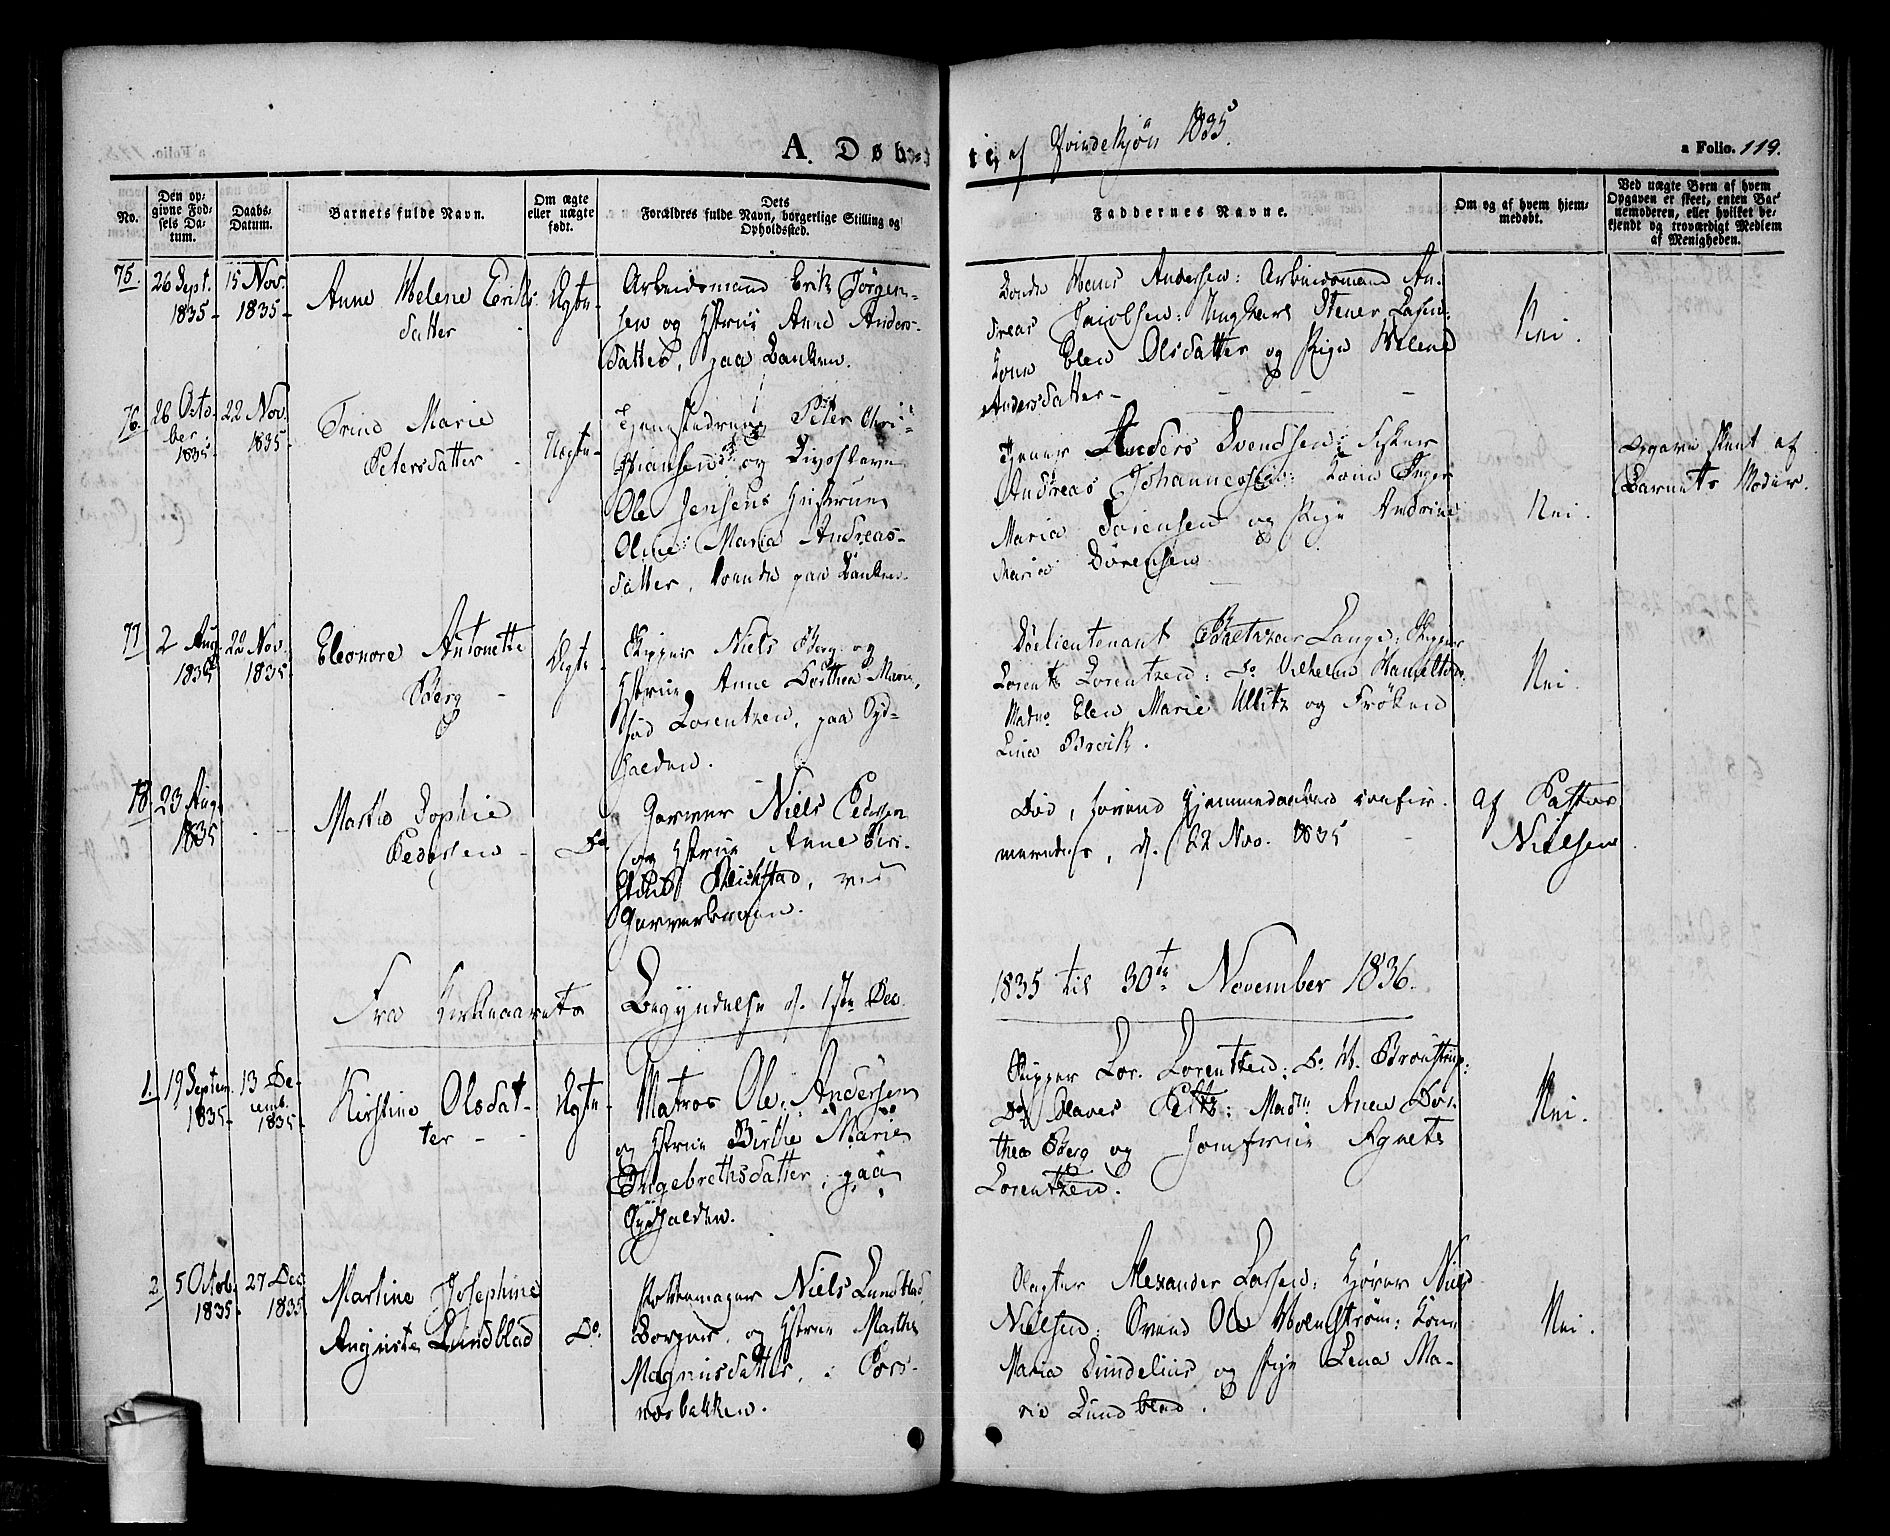 A. Døbte, af Qvindekjön 1835.
a Folio. 119.
No.
Den opgivne Fødsels Datum.
Daabs-Datum.
Barnets fulde Navn.
Om ægte eller uægte født.
Dets Forældres fulde Navn, borgerlige Stilling og Opholdssted.
Faddernes Navne.
Om og af hvem hjemmedøbt.
Ved uægte Børn af hvem Opgaven er skeet, enten Barnemoderen, eller hvilket bekjendt og troværdigt Medlem af Menigheden.
75. 26 Sept. 1835 15 Nov. 1835
Anne Helene Eriks
datter
Ægte
Arbeidsmand Erik Jørgen-
sen og Hstrue Anne Anders-
datter, paa Banken.
Bonde Hans Andersen: Arbeidsmand An-
dreas Jacobsen: Ungkarl Stener Larsen:
Kone Elen Olsdatter og Pige Helene
Andersdatter
Nei.
76. 26 Octo-
ber 1835 22 Nov. 1835
Trine Marie
Petersdatter
Uægte
Peter Chri-
stiansen og
Ole Jensens Hustrue
Oline Maria Andreas-
datter, paa Banken.
Tjener Anders Svendsen: Fisker
Andreas Johannessen: Kone Inger
Maria Sørensen og Pige Andrine
Maria Sörensen
Nei.
Opgaven skeet af
Barnets Moder.
77 2 Aug. 1835 22 Nov. 1835
Eleonore Antonette
Berg
Ægte
Skipper Niels Berg og
Hstrue Anne Dorthea Mar
Lorentzen, paa Syd-
halden.
Lange: Skipper
Lorents Lorentzen: Do Vilhelm
Madm Elen Marie Ullitz og Frøken
Lina Brvik.
Nei.
78. 23 Aug. 1835
Marthe Sophie
Pedersen
Do
Garver Niels Pedersen
og Hstrue Anne
ved
Garverbroen.
Död, forend Hjemmedaaben confir-
meredes, d. 22 Nov. 1835
af Pastor
Nielsen
Fra Kirkeaarets Begyndelse d. 1ste Dec.
1835 til 30te November 1836.
1. 19 Septem. 1835 13 De-
cemb. 1835
Kirstine Olsdat-
ter
Ægte
Matros Ole Andersen
og Hstrue Birthe Marie
Ingebrethsdatter, paa
Sydhalden.
Skipper Lor. Lorentzen: Do
Do Peltz: Madm Anne Dor-
thea Berg og Jomfrue Agnete
Lorentzen.
Nei.
2 5 Octob. 1835 27 Dec 1835
Martine Josephine
Auguste Lundblad
Do.
Pottemager Niels Lundblad
Borger, og Hstrue Marthe
Magnusdatter, i Pors-
næsbakken.
Slagter Alexander Larsen: Niels
Nielsen: Svend Ole Holmström: Kone
Maria Sundelius og Pige Lena Ma-
rie Lundblad.
Nei.